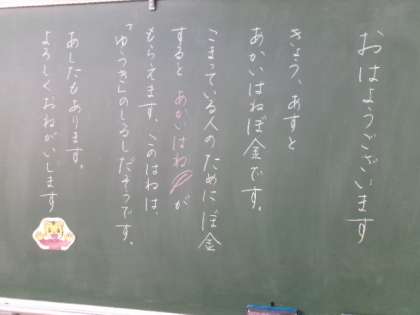 おはようございます
きょう、あすと
あかいはねぼ金です。
こまっている人のためにぼ金
すると あかいはねが
もらえます。このはねは、
「ゆうき」のしるしだそうです。
あしたもあります。
よろしくおねがいします